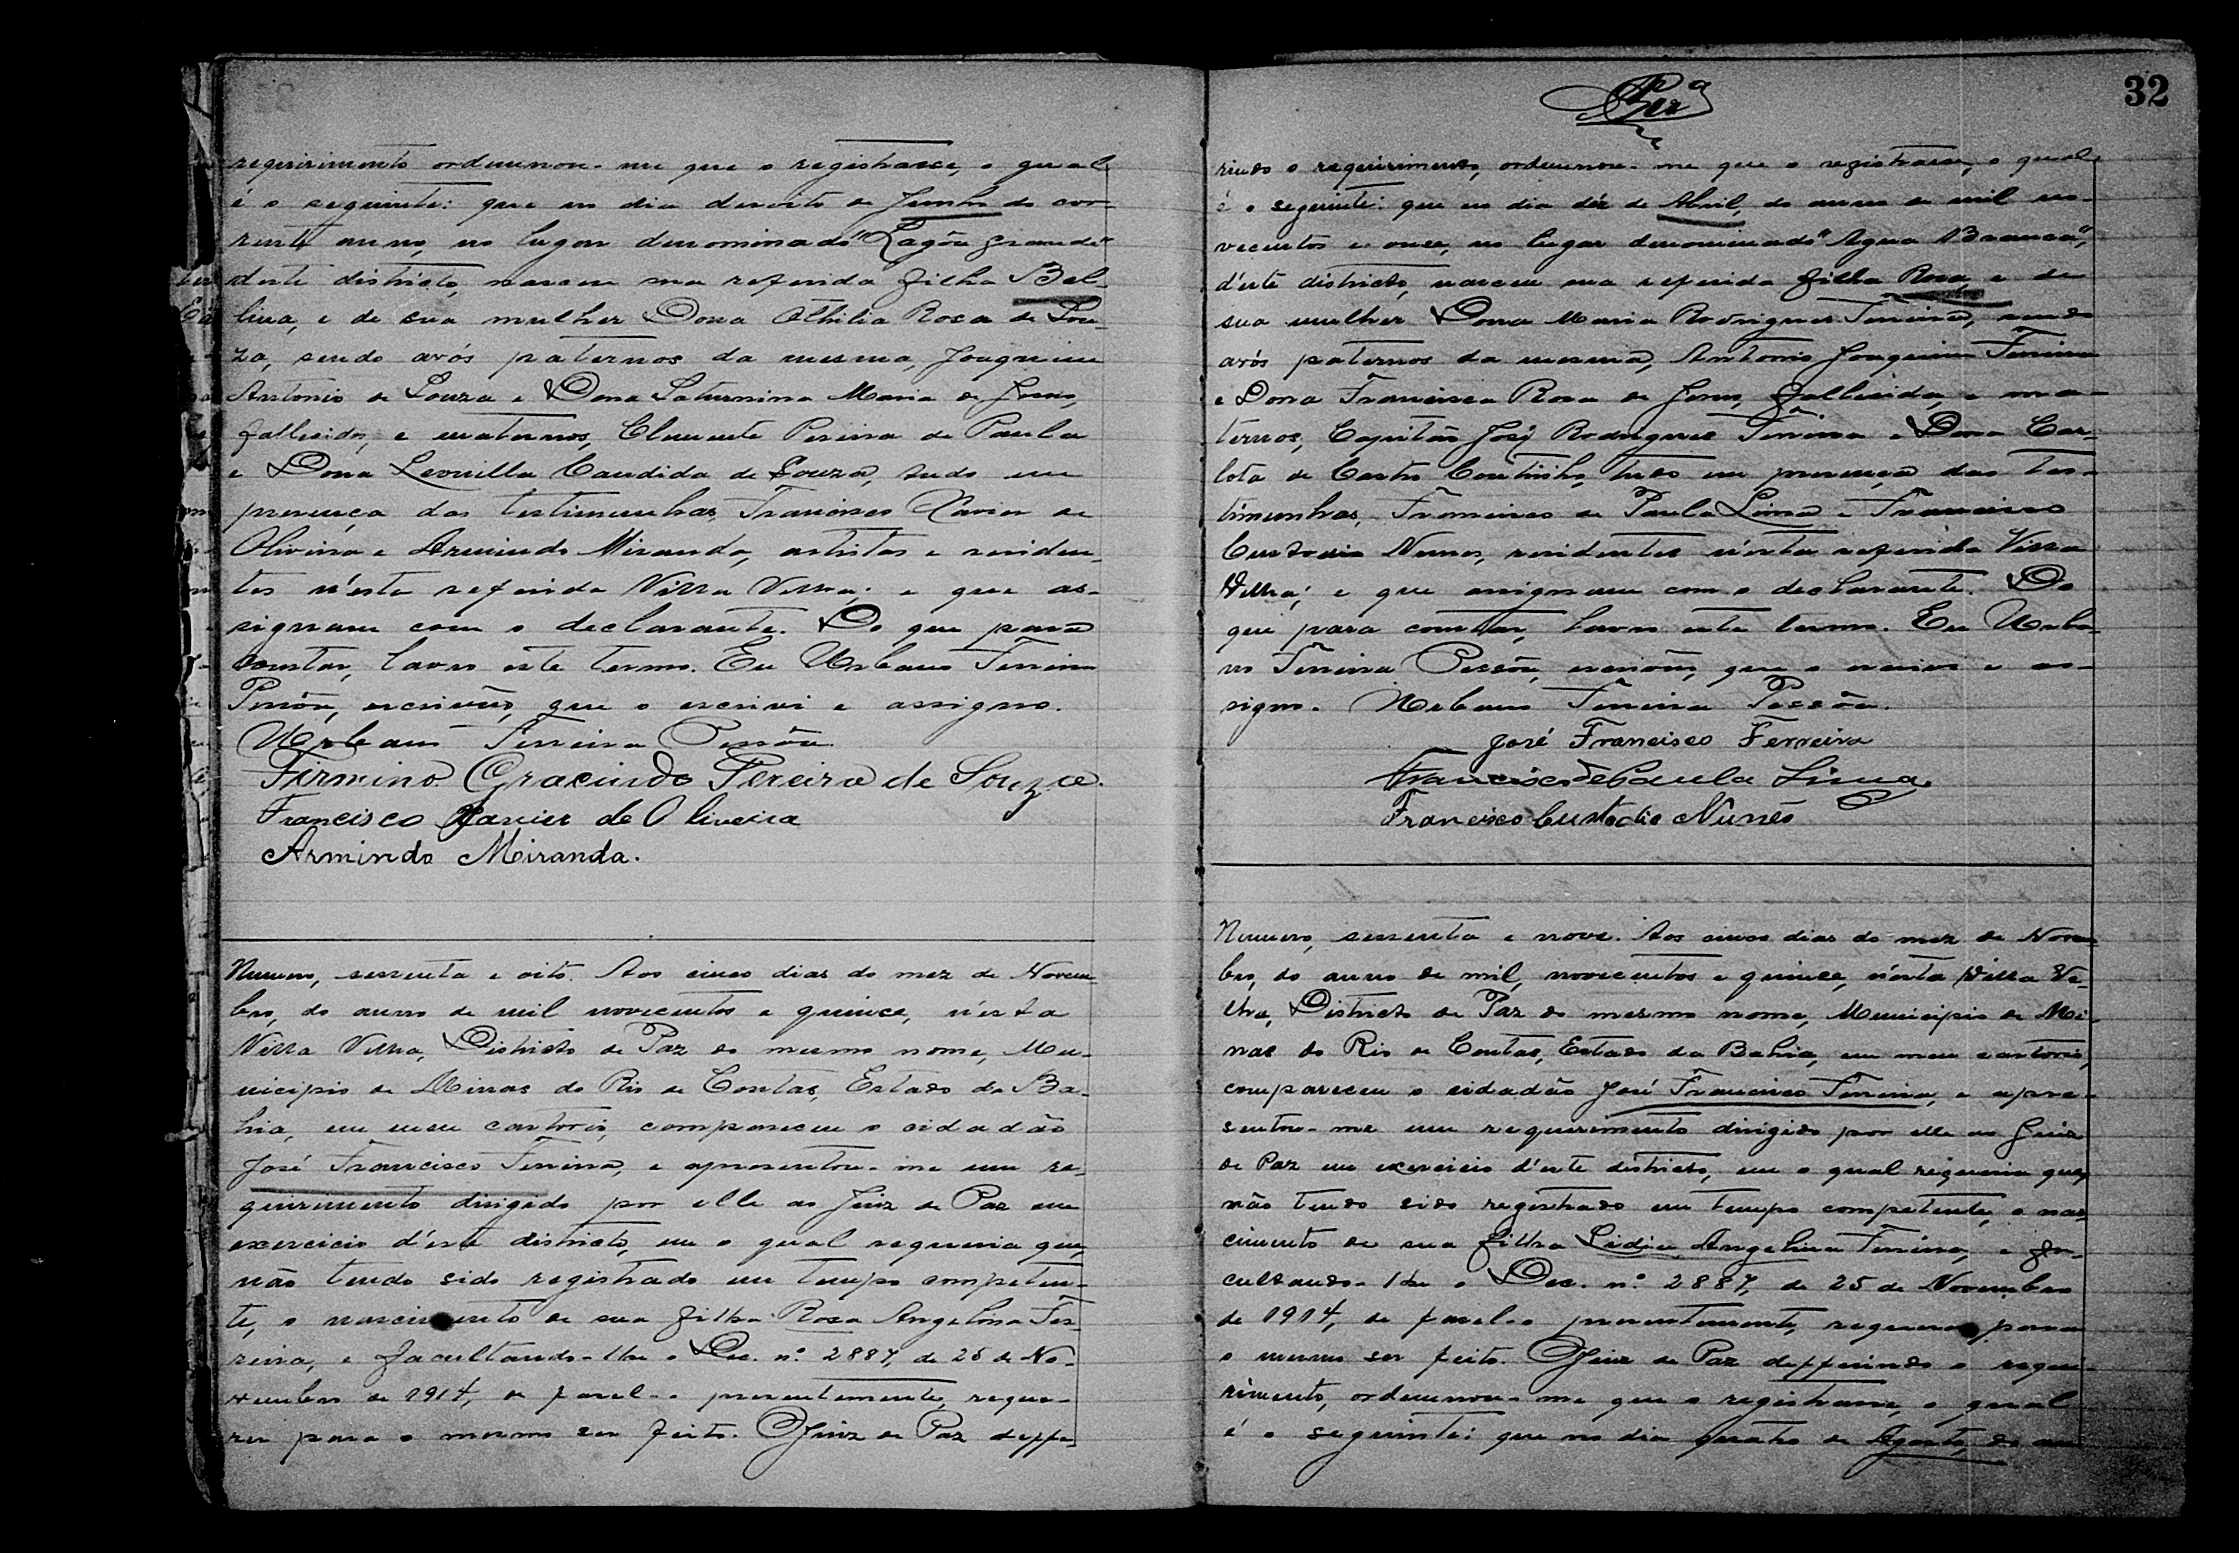 requirimento ordennou-me que o registrasse, o qual
é o seguinte: que no dia dezoito de Junho do cor-
rente anno, no lugar denominado "Lagôa grande"
deste districto, nasceu sua referida filha Bel-
lina, e de sua mulher Dona Othilia Rosa de Sou-
za, sendo avós paternos da mesma, Joaquim
Antonio de Souza e Dona Saturnina Maria de Jesus,
fallecidos, e maternos, Clemente Pereira de Paula
e Dona Leonilla Candida de Souza, tudo em
presença das testimunhas, Francisco Xavier de
Oliveira e Armindo Miranda, artistas e residen-
tes n'esta referida Villa Velha; e que as-
signam com o declarante. Do que para
constar, lavro este termo. Eu Urbano Ferreira
Pessôa, escrivão, que o escrevi e assigno.
Urbano Ferreira Pessôa
Firmino Gracindo Pereira de Souza.
Francisco Xavier de Oliveira
Armindo Miranda.
Numero, sessenta e oito. Aos cinco dias do mez de Novem-
bro, do anno de mil novecentos e quinze, n'esta
Villa Velha, Districto de Paz do mesmo nome, Mu-
nicipio de Minas do Rio de Contas, Estado da Ba-
hia, em meu cartorio, compareceu o cidadão
José Francisco Ferreira, e apresentou-me um re-
quirimento dirigido por elle ao Juiz de Paz em
exercicio d'este districto, em o qual requeria que
não tendo sido registrado em tempo competen-
te, o nascimento de sua filha Rosa Angelina Fer-
reira, e facultando-lhe o Dec. nº 2887, de 25 de No-
vembro de 1914, de fasel-o presentemente, reque-
rer para o mesmo ser feito. O Juiz de Paz deffe-
32
rindo o requirimento, ordennou-me que o registrasse, o qual
é o seguinte: que no dia déz de Abril, do anno de mil no-
vecentos e onze, no lugar denominado "Agua Branca",
d'este districto, nasceu sua referida filha Rosa e de
sua mulher Dona Maria Rodrigues Ferreira, sendo
avós paternos da mesma, Antonio Joaquim Ferreira
e Dona Francisca Rosa de Jesus, fallecida, e ma-
ternos, Capitão José Rodrigues Ferreira e Dona Car-
lota de Castro Coutinho, tudo em presença das tes-
timunhas, Francisco de Paula Lima e Francisco
Custodio Nunes, residentes n'esta referida Villa
Velha; e que assignam com o declarante. Do
que para constar, lavro este termo. Eu Urba-
no Ferreira Pessôa, escrivão, que o escrevi e as-
signo. Urbano Ferreira Pessôa.
José Francisco Ferreira
Francisco de Paula Lima
Francisco Custodio Nunes
Numero, sessenta e nove. Aos cinco dias do mez de Novem-
bro, do anno de mil, novecentos e quinze, n'esta Villa Ve-
lha, Districto de Paz do mesmo nome, Municipio de Mi-
nas do Rio de Contas, Estado da Bahia, em meu cartorio,
compareceu o cidadão José Francisco Ferreira, e apre-
sentou-me um requerimento dirigido por elle ao Juiz
de Paz em exercicio d'este districto, em o qual requeria que,
não tendo sido registrado em tempo competente, o nas-
cimento de sua filha Lidia Angelina Ferreira, e fa-
cultando-lhe o Dec. nº 2887, de 25 de Novembro
de 1914, de fasel-o presentemente, requerer para
o mesmo ser feito. O Juiz de Paz defferindo o reque-
rimento, ordennou-me que o registrasse, o qual
é o seguinte: que no dia quatro de Agosto, do an-